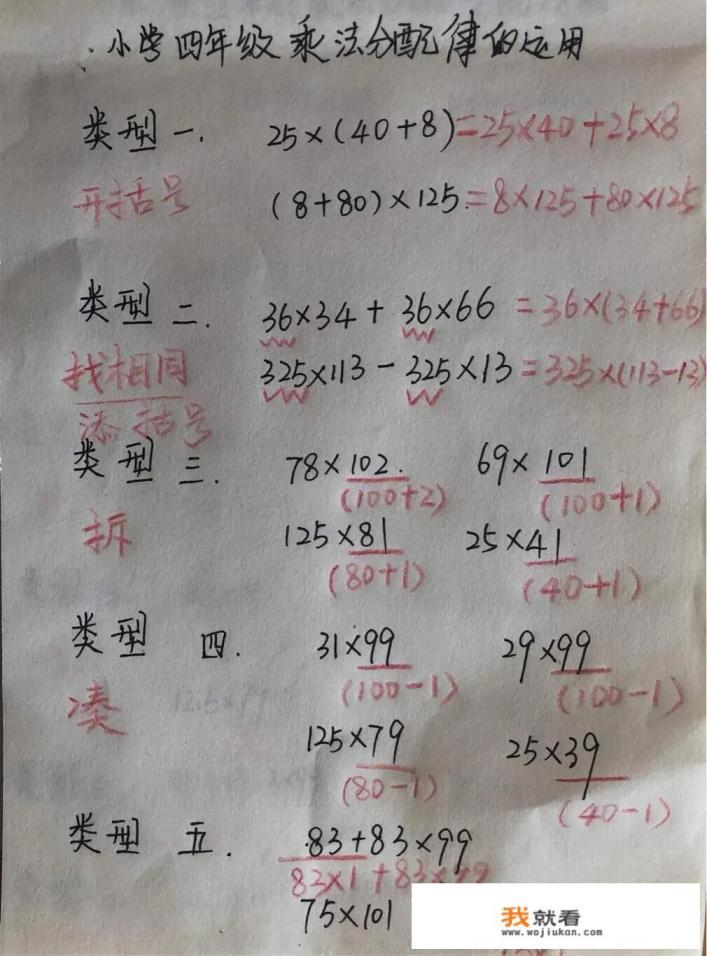 小学四年级乘法分配律的运用
类型一. 25×(40+8)=25×40+25×8
开括号 (8+80)×125=8×125+80×125
类型二. 36×34+36×66=36×(34+66)
找相同 325×113-325×13=325×(113-13)
添括号
类型三. 78×102 69×101
(100+2) (100+1)
拆 125×81 25×41
(80+1) (40+1)
类型四. 31×99 29×99
凑 (100-1) (100-1)
125×79 25×39
(80-1) (40-1)
类型五. 83+83×99
83×1+83×99
75×101
我就看
www.wojiukan.com